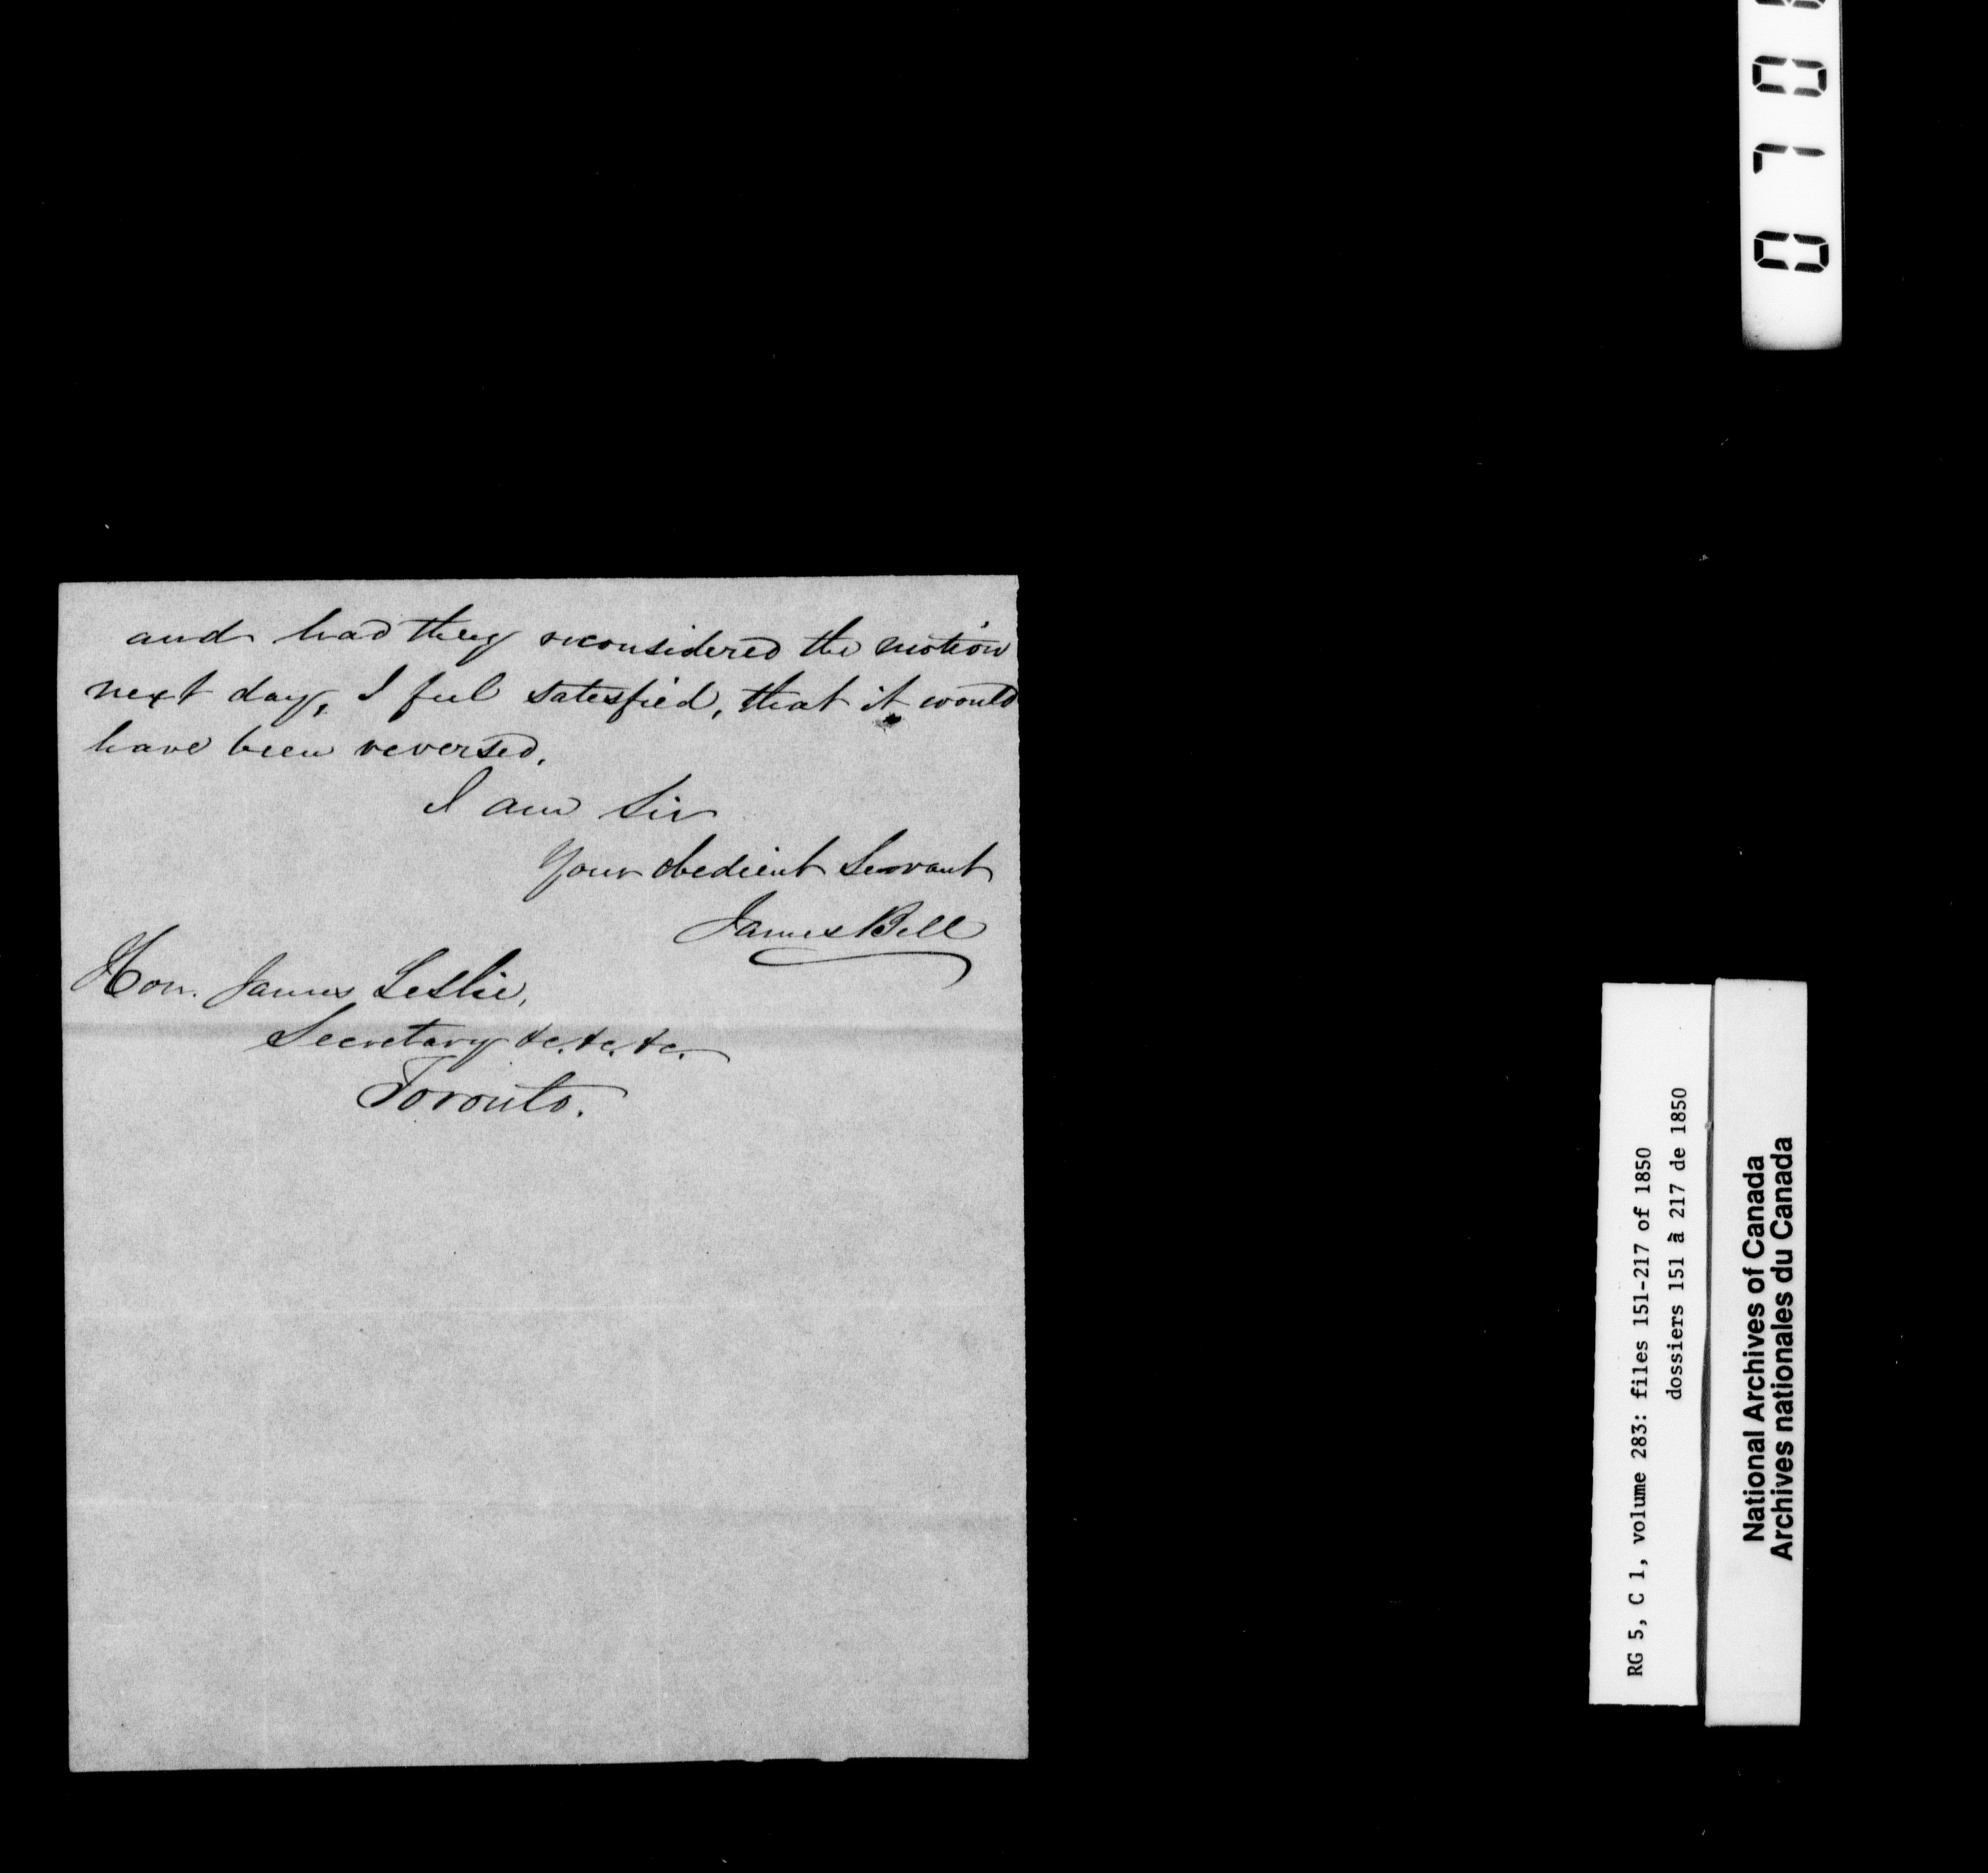 and had they reconsidered the motion
next day, I feel satesfied, that it would
have been reversed.
I am Sir
Your obedient Servant
James Bell
Hon. James Leslie,
Secretary &c. &c. &c.
Toronto.
RG 5, C 1, volume 283: files 151-217 of 1850
dossiers 151 à 217 de 1850
National Archives of Canada
Archives nationales du Canada
070